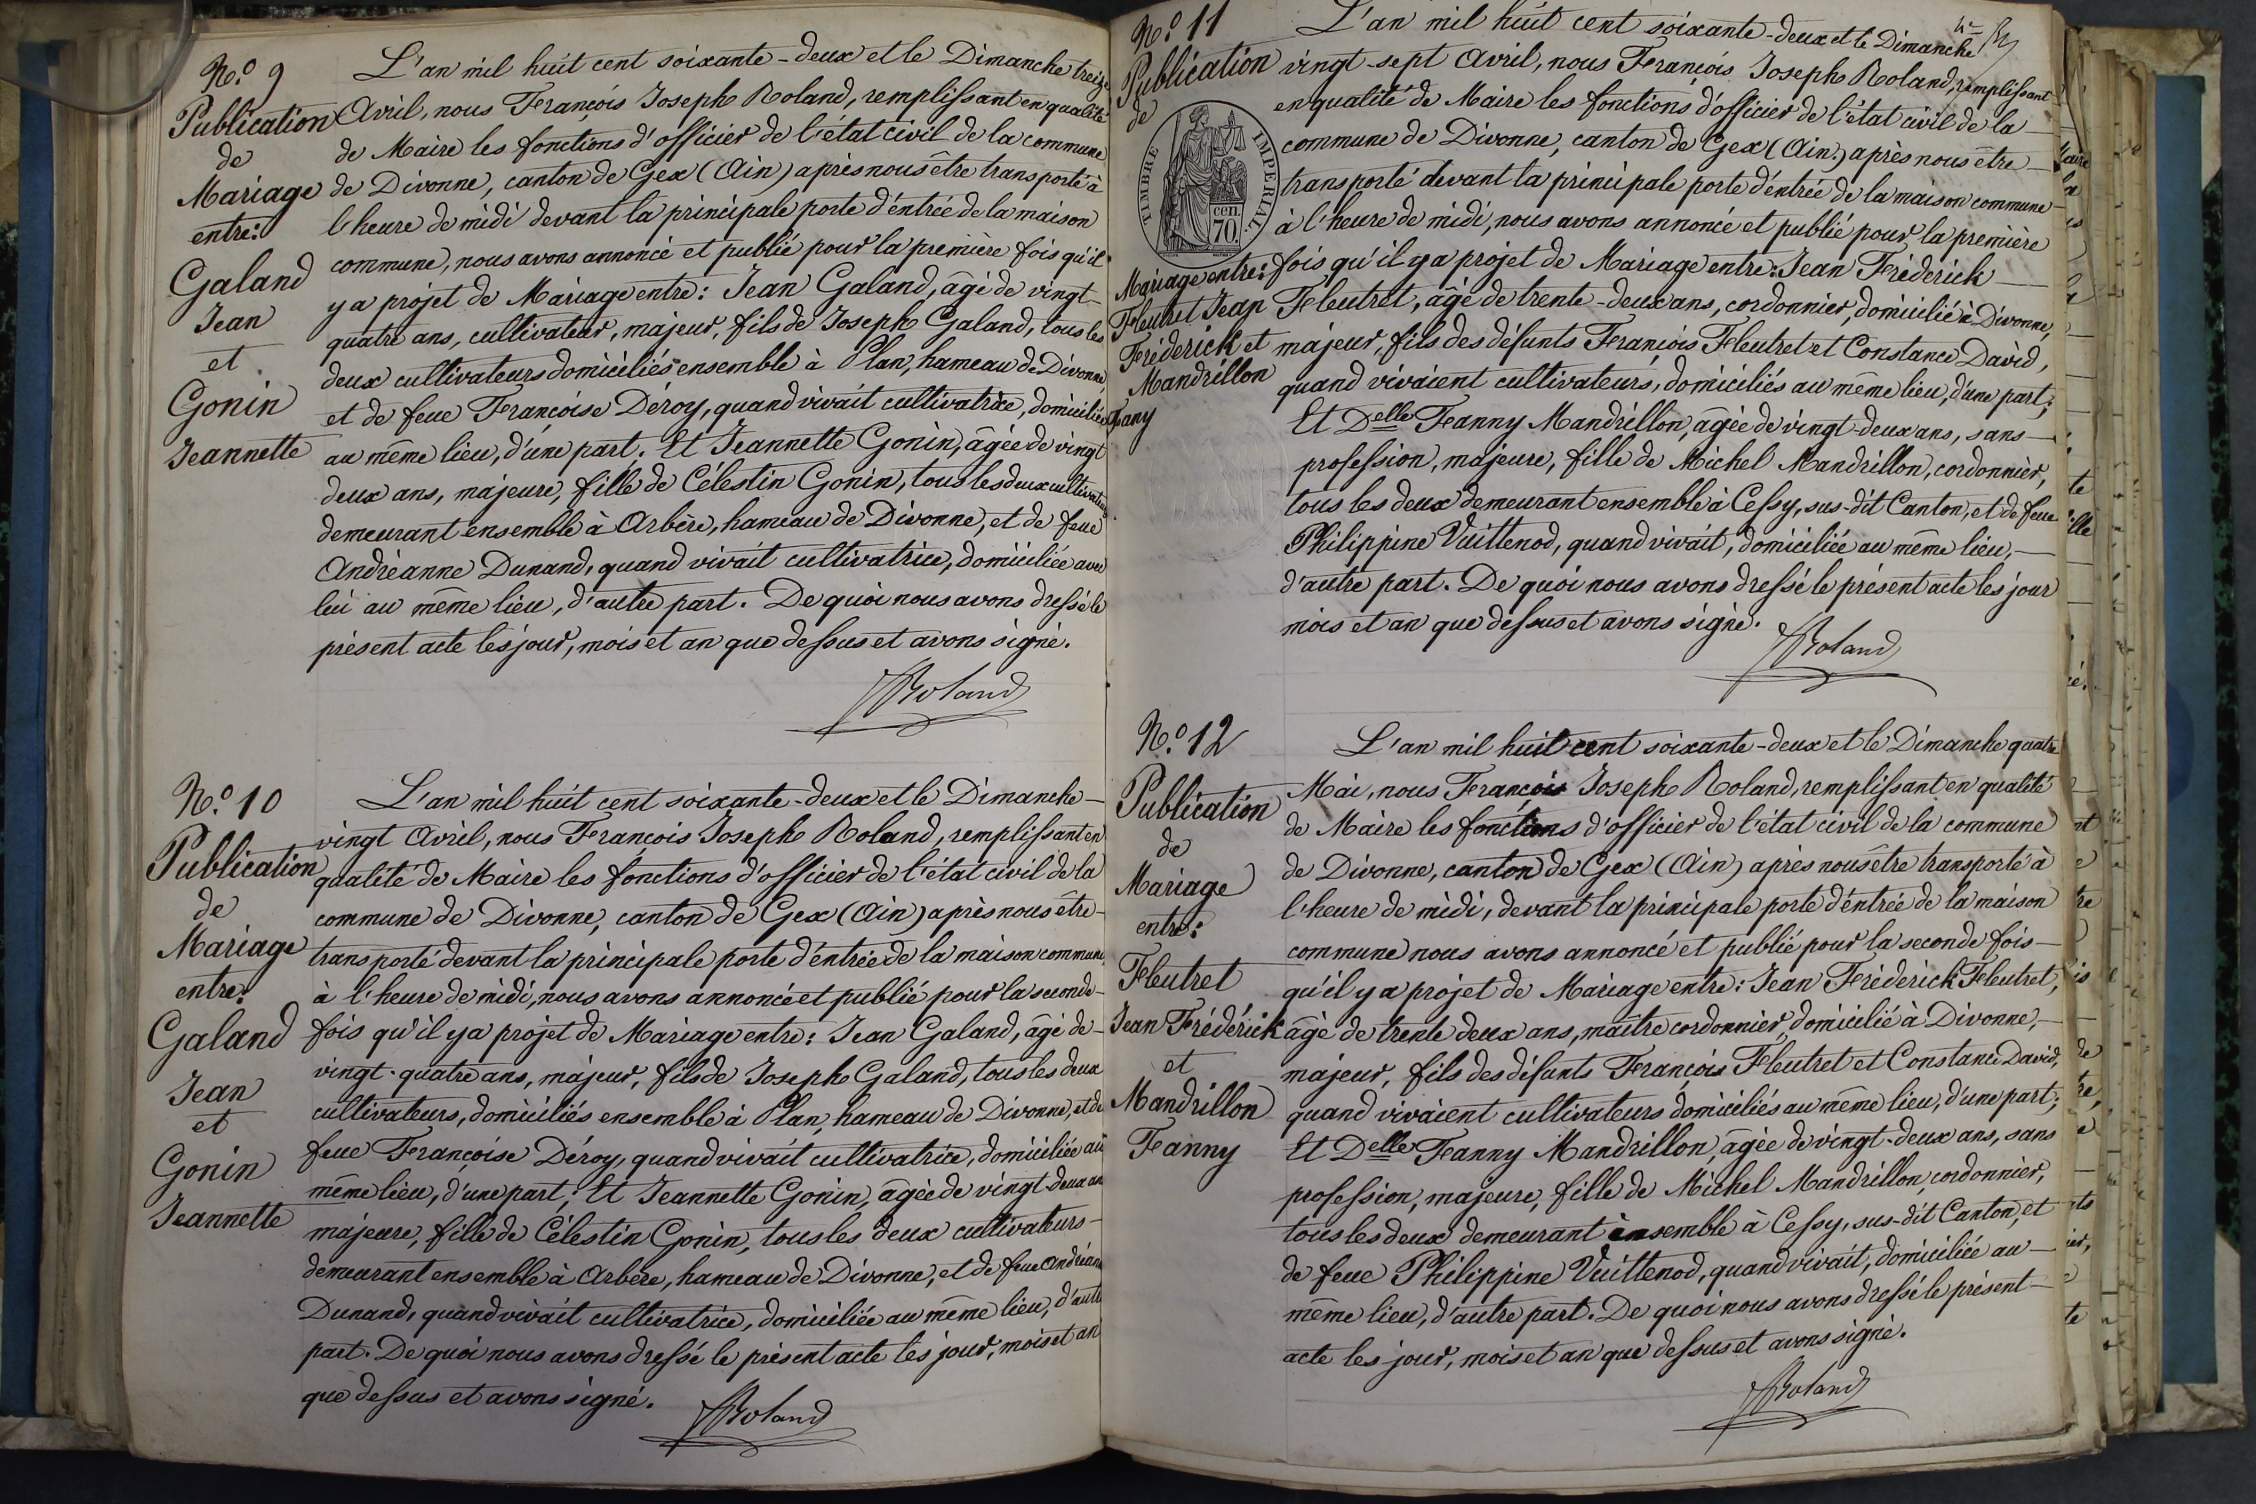 N.o 9
Publication
de
Mariage
entre:
Galand
Jean
et
Gonin
Jeannette
L'an mil huit cent soixante-deux et le Dimanche treize
Avril, nous François Joseph Roland, remplissant en qualité
de Maire les fonctions d'officier de l'état civil de la commune
de Divonne, canton de Gex (Ain) après nous être transporté à
l'heure de midi devant la principale porte d'éntrée de la maison
commune, nous avons annoncé et publié pour la première fois qu'il
y a projet de Mariage entre: Jean Galand, âgé de vingt-
quatre ans, cultivateur, majeur, fils de Joseph Galand, tous les
deux cultivateurs domiciliés ensemble à Plan, hameau de Divonne
et de feue Françoise Déroy, quand vivait cultivatrice, domiciliée
au même lieu, d'une part. Et Jeannette Gonin, âgée de vingt
deux ans, majeure, fille de Célestin Gonin, tous les deux cultivateurs
demeurant ensemble à Arbère, hameau de Divonne, et de feue
Andréanne Dunand, quand vivait cultivatrice, domiciliée avec
lui au même lieu, d'autre part. De quoi nous avons dressé le
présent acte les jour, mois et an que dessus et avons signé.
Roland
N.o 10
Publication
de
Mariage
entre:
Galand
Jean
et
Gonin
Jeannette
L'an mil huit cent soixante-deux et le Dimanche
vingt Avril, nous François Joseph Roland, remplissant en
qualité de Maire les fonctions d'officier de l'état civil de la
commune de Divonne, canton de Gex (Ain) après nous être
transporté devant la principale porte d'éntrée de la maison commune
à l'heure de midi, nous avons annoncé et publié pour la seconde
fois qu'il y a projet de Mariage entre: Jean Galand, âgé de
vingt-quatre ans, majeur, fils de Joseph Galand, tous les deux
cultivateurs, domiciliés ensemble à Plan, hameau de Divonne, et de
feue Françoise Déroy, quand vivait cultivatrice, domiciliée au
même lieu, d'une part; Et Jeannette Gonin, âgée de vingt-deux ans
majeure, fille de Célestin Gonin, tous les deux cultivateurs
demeurant ensemble à Arbère, hameau de Divonne, et de feue Andréanne
Dunand, quand vivait cultivatrice, domiciliée au même lieu, d'autre
part. De quoi nous avons dressé le présent acte les jour, mois et an
que dessus et avons signé.
Roland
N.o 11
Publication
de
TIMBRE IMPERIAL
70 cen.
Mariage entre:
Fleutret Jean
Fréderick et
Mandrillon
Fany
L'an mil huit cent soixante-deux et le Dimanche
vingt-sept Avril, nous François Joseph Roland, remplissant
en qualité de Maire les fonctions d'officier de l'état civil de la
commune de Divonne, canton de Gex (Ain) après nous être
transporté devant la principale porte d'éntrée de la maison commune
à l'heure de midi, nous avons annoncé et publié pour la première
fois qu'il y a projet de Mariage entre: Jean Fréderick
Fleutret, âgé de trente-deux ans, cordonnier, domicilié à Divonne,
majeur, fils des défunts François Fleutret et Constance David,
quand vivaient cultivateurs, domiciliés au même lieu, d'une part;
Et Delle Fanny Mandrillon, âgée de vingt-deux ans, sans
profession, majeure, fille de Michel Mandrillon, cordonnier,
tous les deux demeurant ensemble à Cessy, sus-dit Canton, et de feue
Philippine Vuittenod, quand vivait, domiciliée au même lieu,
d'autre part. De quoi nous avons dressé le présent acte les jour
mois et an que dessus et avons signé.
Roland
N.o 12
Publication
de
Mariage
entre:
Fleutret
Jean Fréderick
et
Mandrillon
Fanny
L'an mil huit cent soixante-deux et le Dimanche quatre
Mai, nous François Joseph Roland, remplissant en qualité
de Maire les fonctions d'officier de l'état civil de la commune
de Divonne, canton de Gex (Ain) après nous être transporté à
l'heure de midi, devant la principale porte d'éntrée de la maison
commune nous avons annoncé et publié pour la seconde fois
qu'il y a projet de Mariage entre: Jean Fréderick Fleutret,
âgé de trente deux ans, maître cordonnier, domicilié à Divonne,
majeur, fils des défunts François Fleutret et Constance David,
quand vivaient cultivateurs domiciliés au même lieu, d'une part;
Et Delle Fanny Mandrillon, âgée de vingt-deux ans, sans
profession, majeure, fille de Michel Mandrillon, cordonnier,
tous les deux demeurant ensemble à Cessy, sus-dit Canton, et
de feue Philippine Vuittenod, quand vivait, domiciliée au
même lieu, d'autre part. De quoi nous avons dressé le présent
acte les jour, mois et an que dessus et avons signé.
Roland